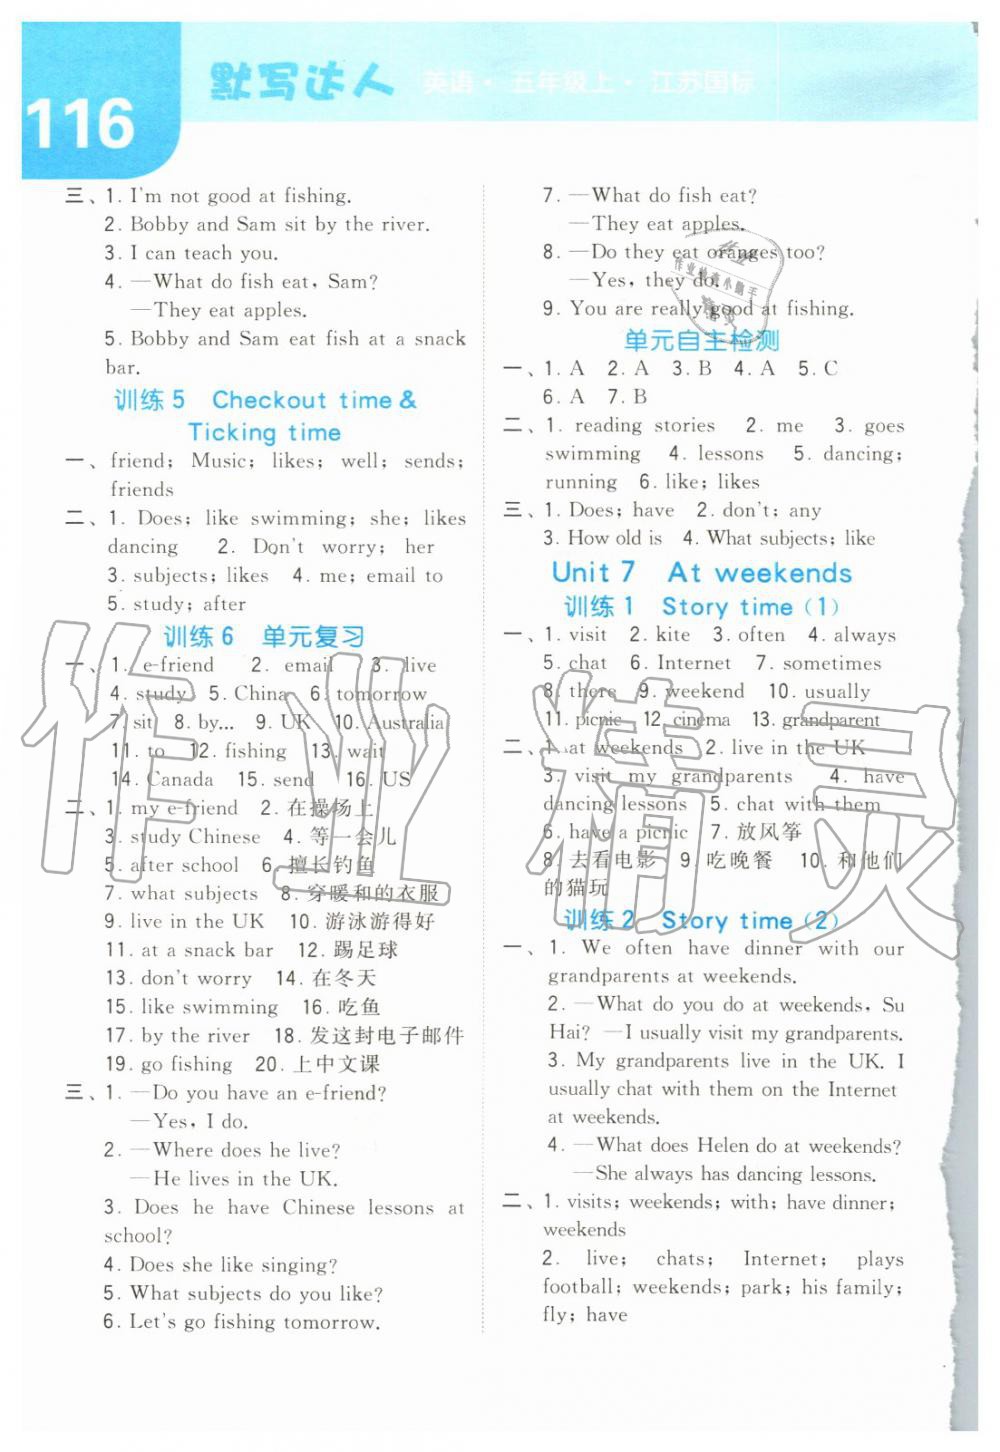 116
默写达人 英语·五年级上·江苏国标
三、1. I'm not good at fishing.
2. Bobby and Sam sit by the river.
3. I can teach you.
4. —What do fish eat, Sam?
—They eat apples.
5. Bobby and Sam eat fish at a snack
bar.
训练 5 Checkout time &
Ticking time
一、friend; Music; likes; well; sends;
friends
二、1. Does; like swimming; she; likes
dancing 2. Don't worry; her
3. subjects; likes 4. me; email to
5. study; after
训练 6 单元复习
一、1. e-friend 2. email 3. live
4. study 5. China 6. tomorrow
7. sit 8. by... 9. UK 10. Australia
11. to 12. fishing 13. wait
14. Canada 15. send 16. US
二、1. my e-friend 2. 在操场上
3. study Chinese 4. 等一会儿
5. after school 6. 擅长钓鱼
7. what subjects 8. 穿暖和的衣服
9. live in the UK 10. 游泳游得好
11. at a snack bar 12. 踢足球
13. don't worry 14. 在冬天
15. like swimming 16. 吃鱼
17. by the river 18. 发这封电子邮件
19. go fishing 20. 上中文课
三、1. —Do you have an e-friend?
—Yes, I do.
2. —Where does he live?
—He lives in the UK.
3. Does he have Chinese lessons at
school?
4. Does she like singing?
5. What subjects do you like?
6. Let's go fishing tomorrow.
7. —What do fish eat?
—They eat apples.
8. —Do they eat oranges too?
—Yes, they do.
9. You are really good at fishing.
单元自主检测
一、1. A 2. A 3. B 4. A 5. C
6. A 7. B
二、1. reading stories 2. me 3. goes
swimming 4. lessons 5. dancing;
running 6. like; likes
三、1. Does; have 2. don't; any
3. How old is 4. What subjects; like
Unit 7 At weekends
训练 1 Story time (1)
一、1. visit 2. kite 3. often 4. always
5. chat 6. Internet 7. sometimes
8. there 9. weekend 10. usually
11. picnic 12. cinema 13. grandparent
二、1. at weekends 2. live in the UK
3. visit my grandparents 4. have
dancing lessons 5. chat with them
6. have a picnic 7. 放风筝
8. 去看电影 9. 吃晚餐 10. 和他们
的猫玩
训练 2 Story time (2)
一、1. We often have dinner with our
grandparents at weekends.
2. —What do you do at weekends, Su
Hai? —I usually visit my grandparents.
3. My grandparents live in the UK. I
usually chat with them on the Internet
at weekends.
4. —What does Helen do at weekends?
—She always has dancing lessons.
二、1. visits; weekends; with; have dinner;
weekends
2. live; chats; Internet; plays
football; weekends; park; his family;
fly; have
作业精灵